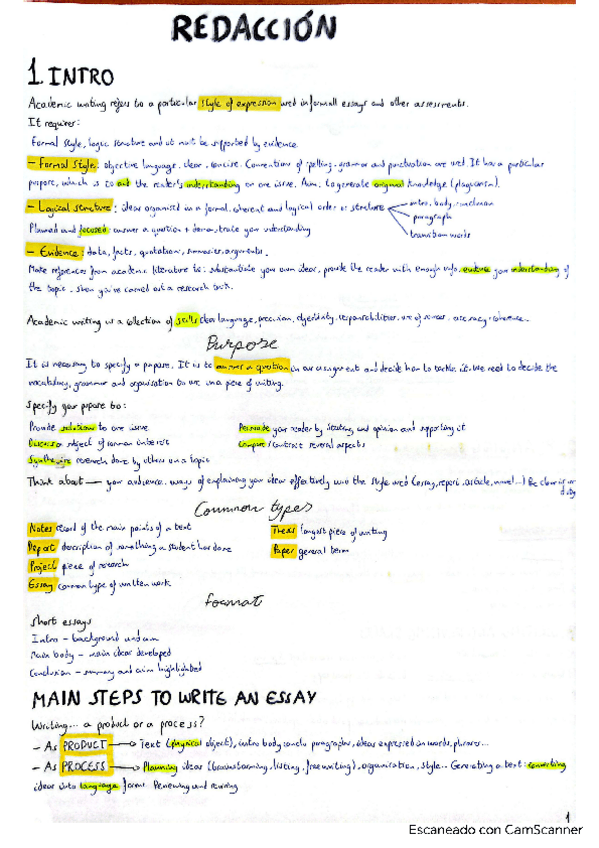 REDACCIÓN
1. INTRO
Academic writing refers to a particular style of expression used in formall essays and other assessments.
It requires:
Formal style, logic structure and it must be supported by evidence
- Formal style: objective language, clear, concise. Convention of spelling, grammar and punctuation are used. It has a particular
purpose, which is to aid the reader's understanding on one issue. Aim: to generate original knowledge (plagiarism).
- Logical structure: ideas organised in a formal, coherent and logical order or structure
intro, body, conclusion
paragraph
transition words
Planned and focused: answer a question + demonstrate your understanding
- Evidence: data, facts, quotation, summaries, arguments.
Make references from academic literature to: substantiate your own ideas, provide the reader with enough info, evidence your understanding of
the topic, show you've carried out a research task.
Academic writing is a collection of skills clear language, precision, objectivity, responsibilities, use of sources, accuracy, coherence.
Purpose
It is necessary to specify a purpose. It is to answer a question in our assignment and decide how to tackle it. We need to decide the
vocabulary, grammar and organisation to use in a piece of writing.
Specify your purpose to:
Provide solution to one issue
Persuade your reader by stating and opinion and supporting it
Discuss subject of common interest
Compare/contrast several aspects
Synthesize research done by others on a topic
Think about — your audience, ways of explaining your ideas effectively and the style used (essay, report, article, novel...) Be clear
Common types
Notes record of the main points of a text
Thesis longest piece of writing
Report description of something a student has done
Paper general term
Project piece of research
Essay common type of written work
Format
Short essays
Intro - background and aim
Main body - main ideas developed
Conclusion - summary and aim highlighted
MAIN STEPS TO WRITE AN ESSAY
Writing... a product or a process?
- As PRODUCT → Text (physical object), intro body conclu paragraphs, ideas expressed on words, phrases...
- As PROCESS → Planning ideas (brainstorming, listing, freewriting), organisation, style... Generating a text: converting
ideas into language forms. Reviewing and revising
1
Escaneado con CamScanner